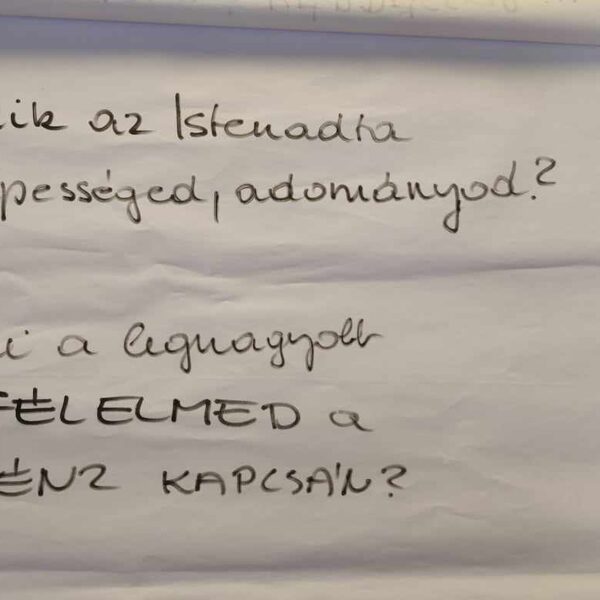 ik az Istenadta
pességed, adományod?
i a legnagyobb
FÉLELMED a
ÉNZ KAPCSÁN?